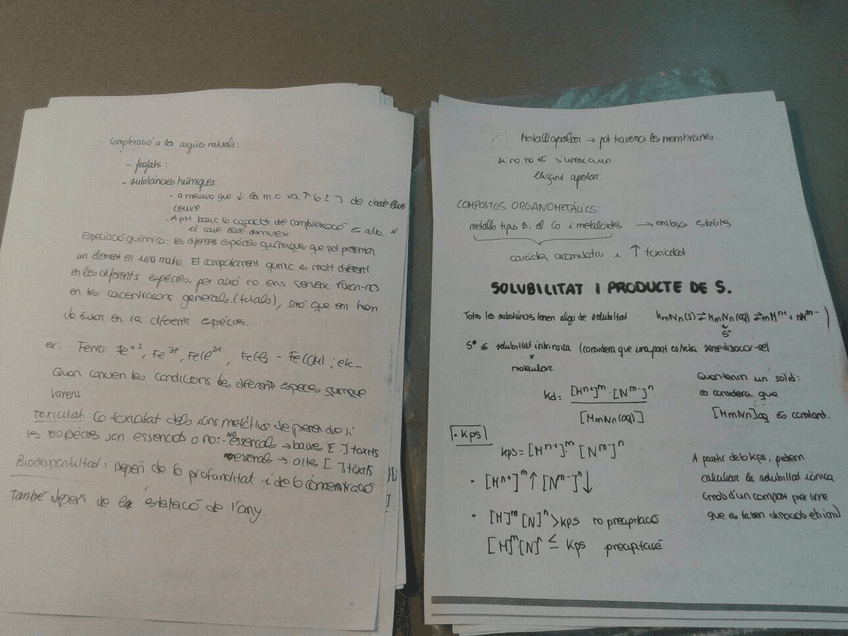 Complexació a les aigües naturals:
- fosfats:
- substàncies húmiques:
· a mesura que ↓ la m.o va ↑ la [ ] de
coure
· A pH bàsic la capacitat de complexació és alta
el coure
Especiació química: les diferents espècies químiques que pot presentar
un element en una matriu. El comportament químic és molt diferent
en les diferents espècies, per això no ens serveix fixar-nos
en les concentracions generals (totals), sinó que ens hem
de fixar en les diferents espècies.
ex: Ferro: Fe+2, Fe3+, Fe(OH)2+, Fe(OH) ; etc-
Quan canvien les condicions les diferent espècies químiques
varien
TOXICITAT: La toxicitat dels ions metàl·lics depèn de si
les espècies són essencials o no: No essencials → baixa [ ] tòxics
essencials → altes [ ] tòxics
Biodisponibilitat: Depèn de la profunditat i de la concentració
També depèn de la estació de l'any.
Metall apolar → pot travessar les membranes
si no ho és s'uneix a un
lligand apolar.
COMPOSTOS ORGANOMETÀL·LICS:
metalls tipo B, el Co i metaloides → enllaços estables
caràcter acumulatiu i ↑ toxicitat
SOLUBILITAT I PRODUCTE DE S.
Totes les substàncies tenen algo de solubilitat MmNn(s) ⇌ MmNn(aq) ⇌ mMn+ + nNm-
S°
S° és solubilitat intrínseca (considera que una part es queda sense dissociar-se)
molecular
Kd = [Mn+]m · [Nm-]n / [MmNn(aq)]
Quan tenim un sòlid:
es considera que
[MmNn]aq és constant.
· Kps
Kps = [Mn+]m [Nm-]n
· [Mn+]m ↑ [Nm-]n ↓
· [M]m [N]n > Kps no precipitació
[M]m [N]n ≤ Kps precipitació
A partir de la kps, podem
calcular la solubilitat iònica
(mols d'un compost per litre
que es troben dissociats en ions)